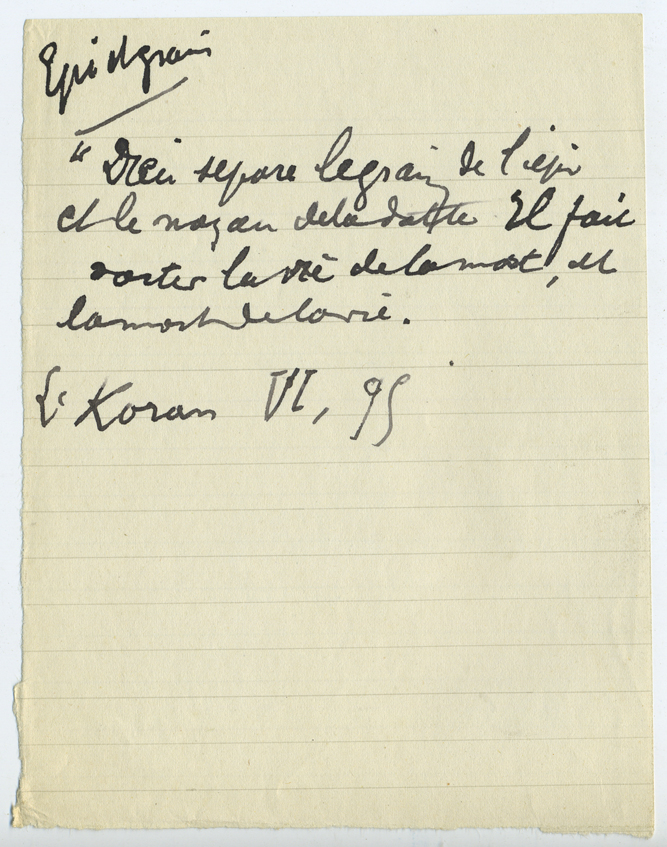 Epi et grain
" Dieu separe le grain de l'epi
et le noyau de la datte Il fait
sortir la vie de la mort, et
la mort de la vie.
Le Koran VI, 95